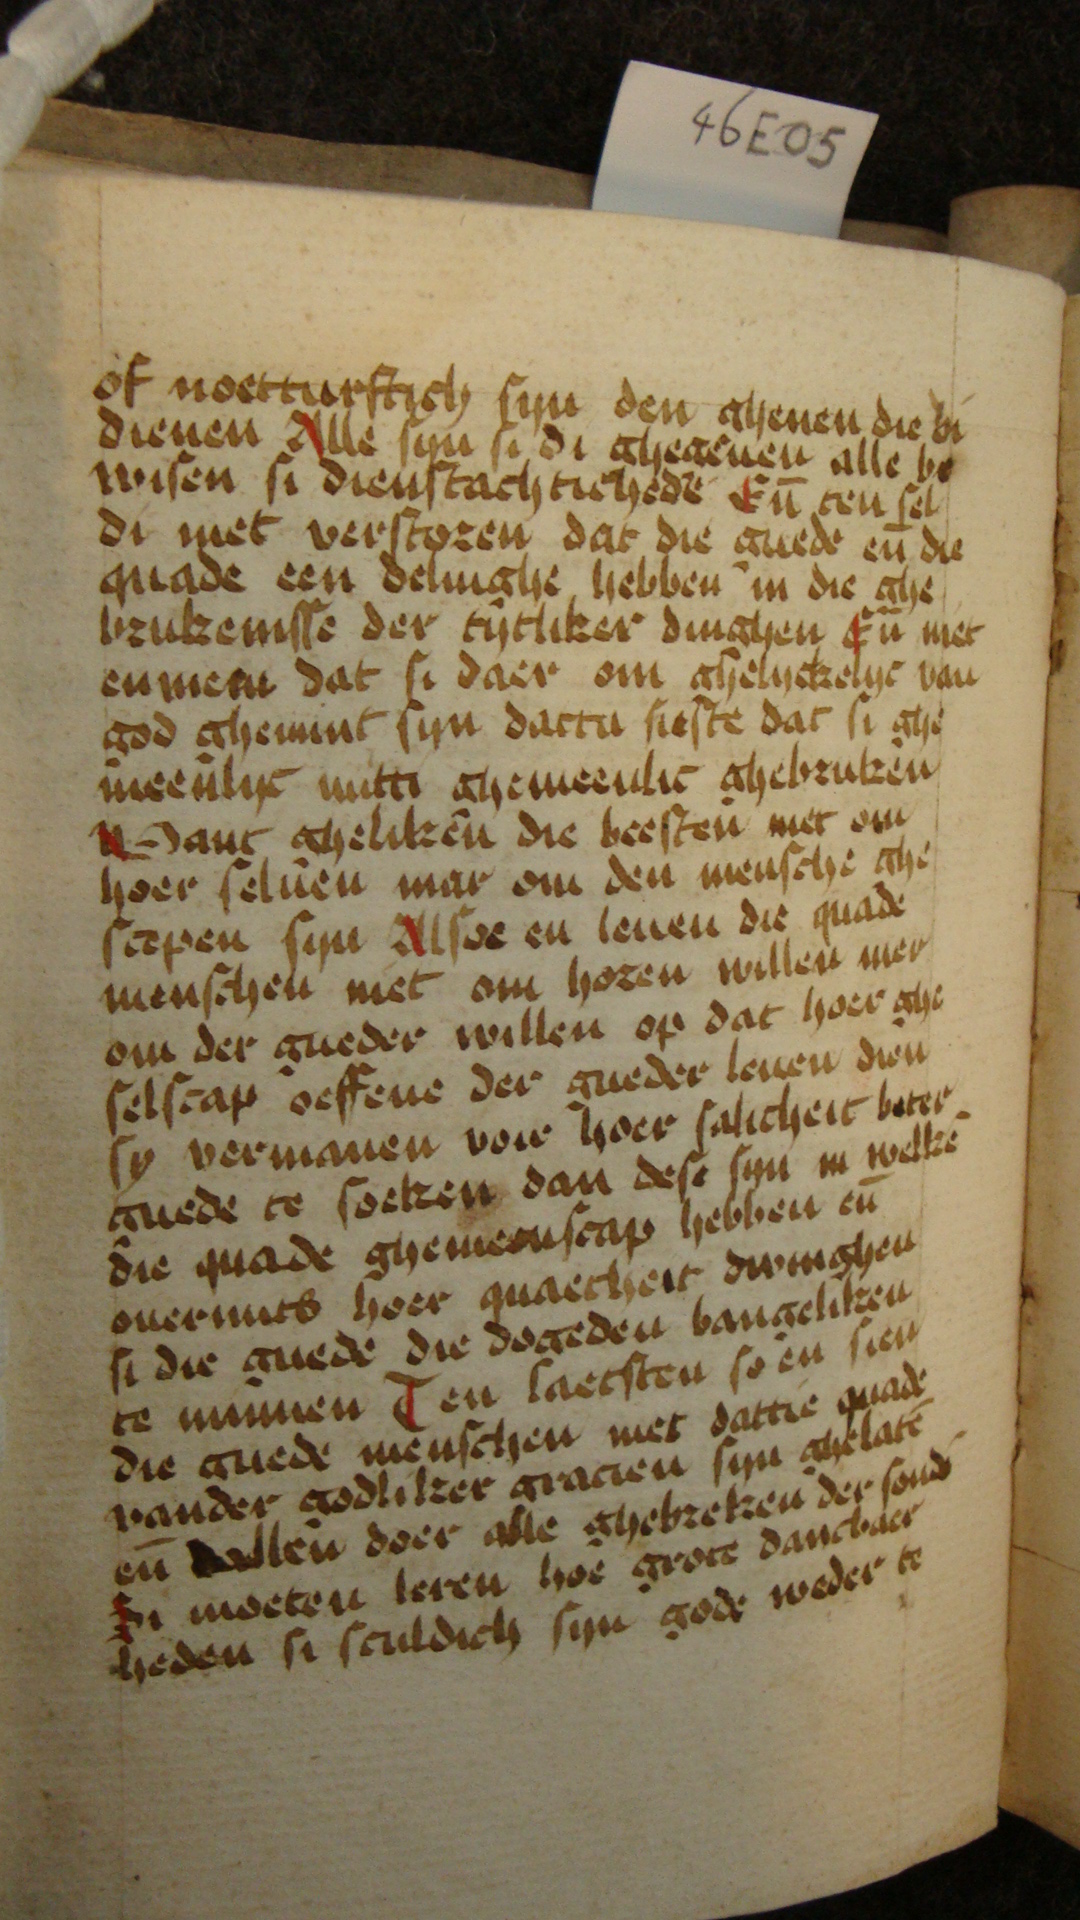 46E05
of noetturftich sijn den ghenen die di
dienen Alle sijn si di ghegeuen alle be
wisen si dienstachtichede Eñ ten sel
di niet verstoren dat die guede eñ die
quade een delinghe hebben in die ghe
brukenisse der tijtliker dinghen Eñ niet
en mein dat si daer om ghelijckelijc van
god ghemint sijn dattu sieste dat si ghe
meenlijc nutti ghemeenlic ghebruken
Want gheliken die beesten niet om
hoer seluen mar om den mensche ghe
scepen sijn Allsoe en leuen die quade
menschen niet om horen willen mer
om der gueder willen op dat hoer ghe
selscap oeffene der gueder leuen dien
sy vermanen voir hoer salicheit beter
guede te soeken dan dese sijn in welkē
die quade ghemeenscap hebben eñ
ouermits hoer quaetheit dwinghen
si die guede die dogeden bangeliken
te minnen Ten laetsten so en sien
die guede menschen niet dattie quade
vander godliker gracien sijn ghelatē
eñ vallen doer alle ghebreken der sonde
Si moeten leren hoe grote dancbaer
heden si sculdich sijn gode weder te